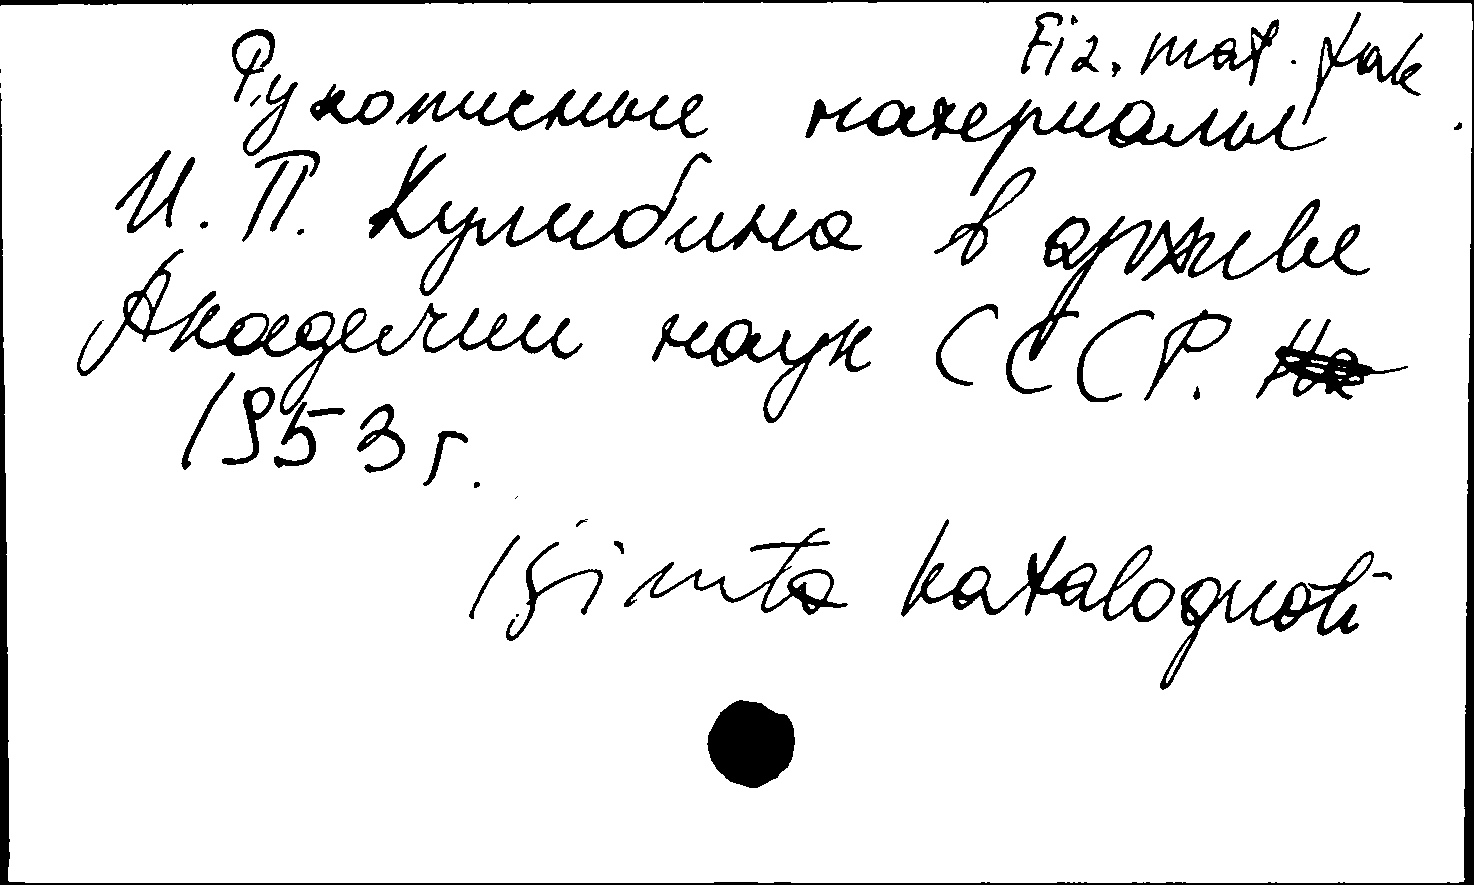 Fiz. mat. fak.
Рукописные материалы
И. П. Кулибина в архиве
Академии наук СССР.
1953 г.
Izimta katalognoti